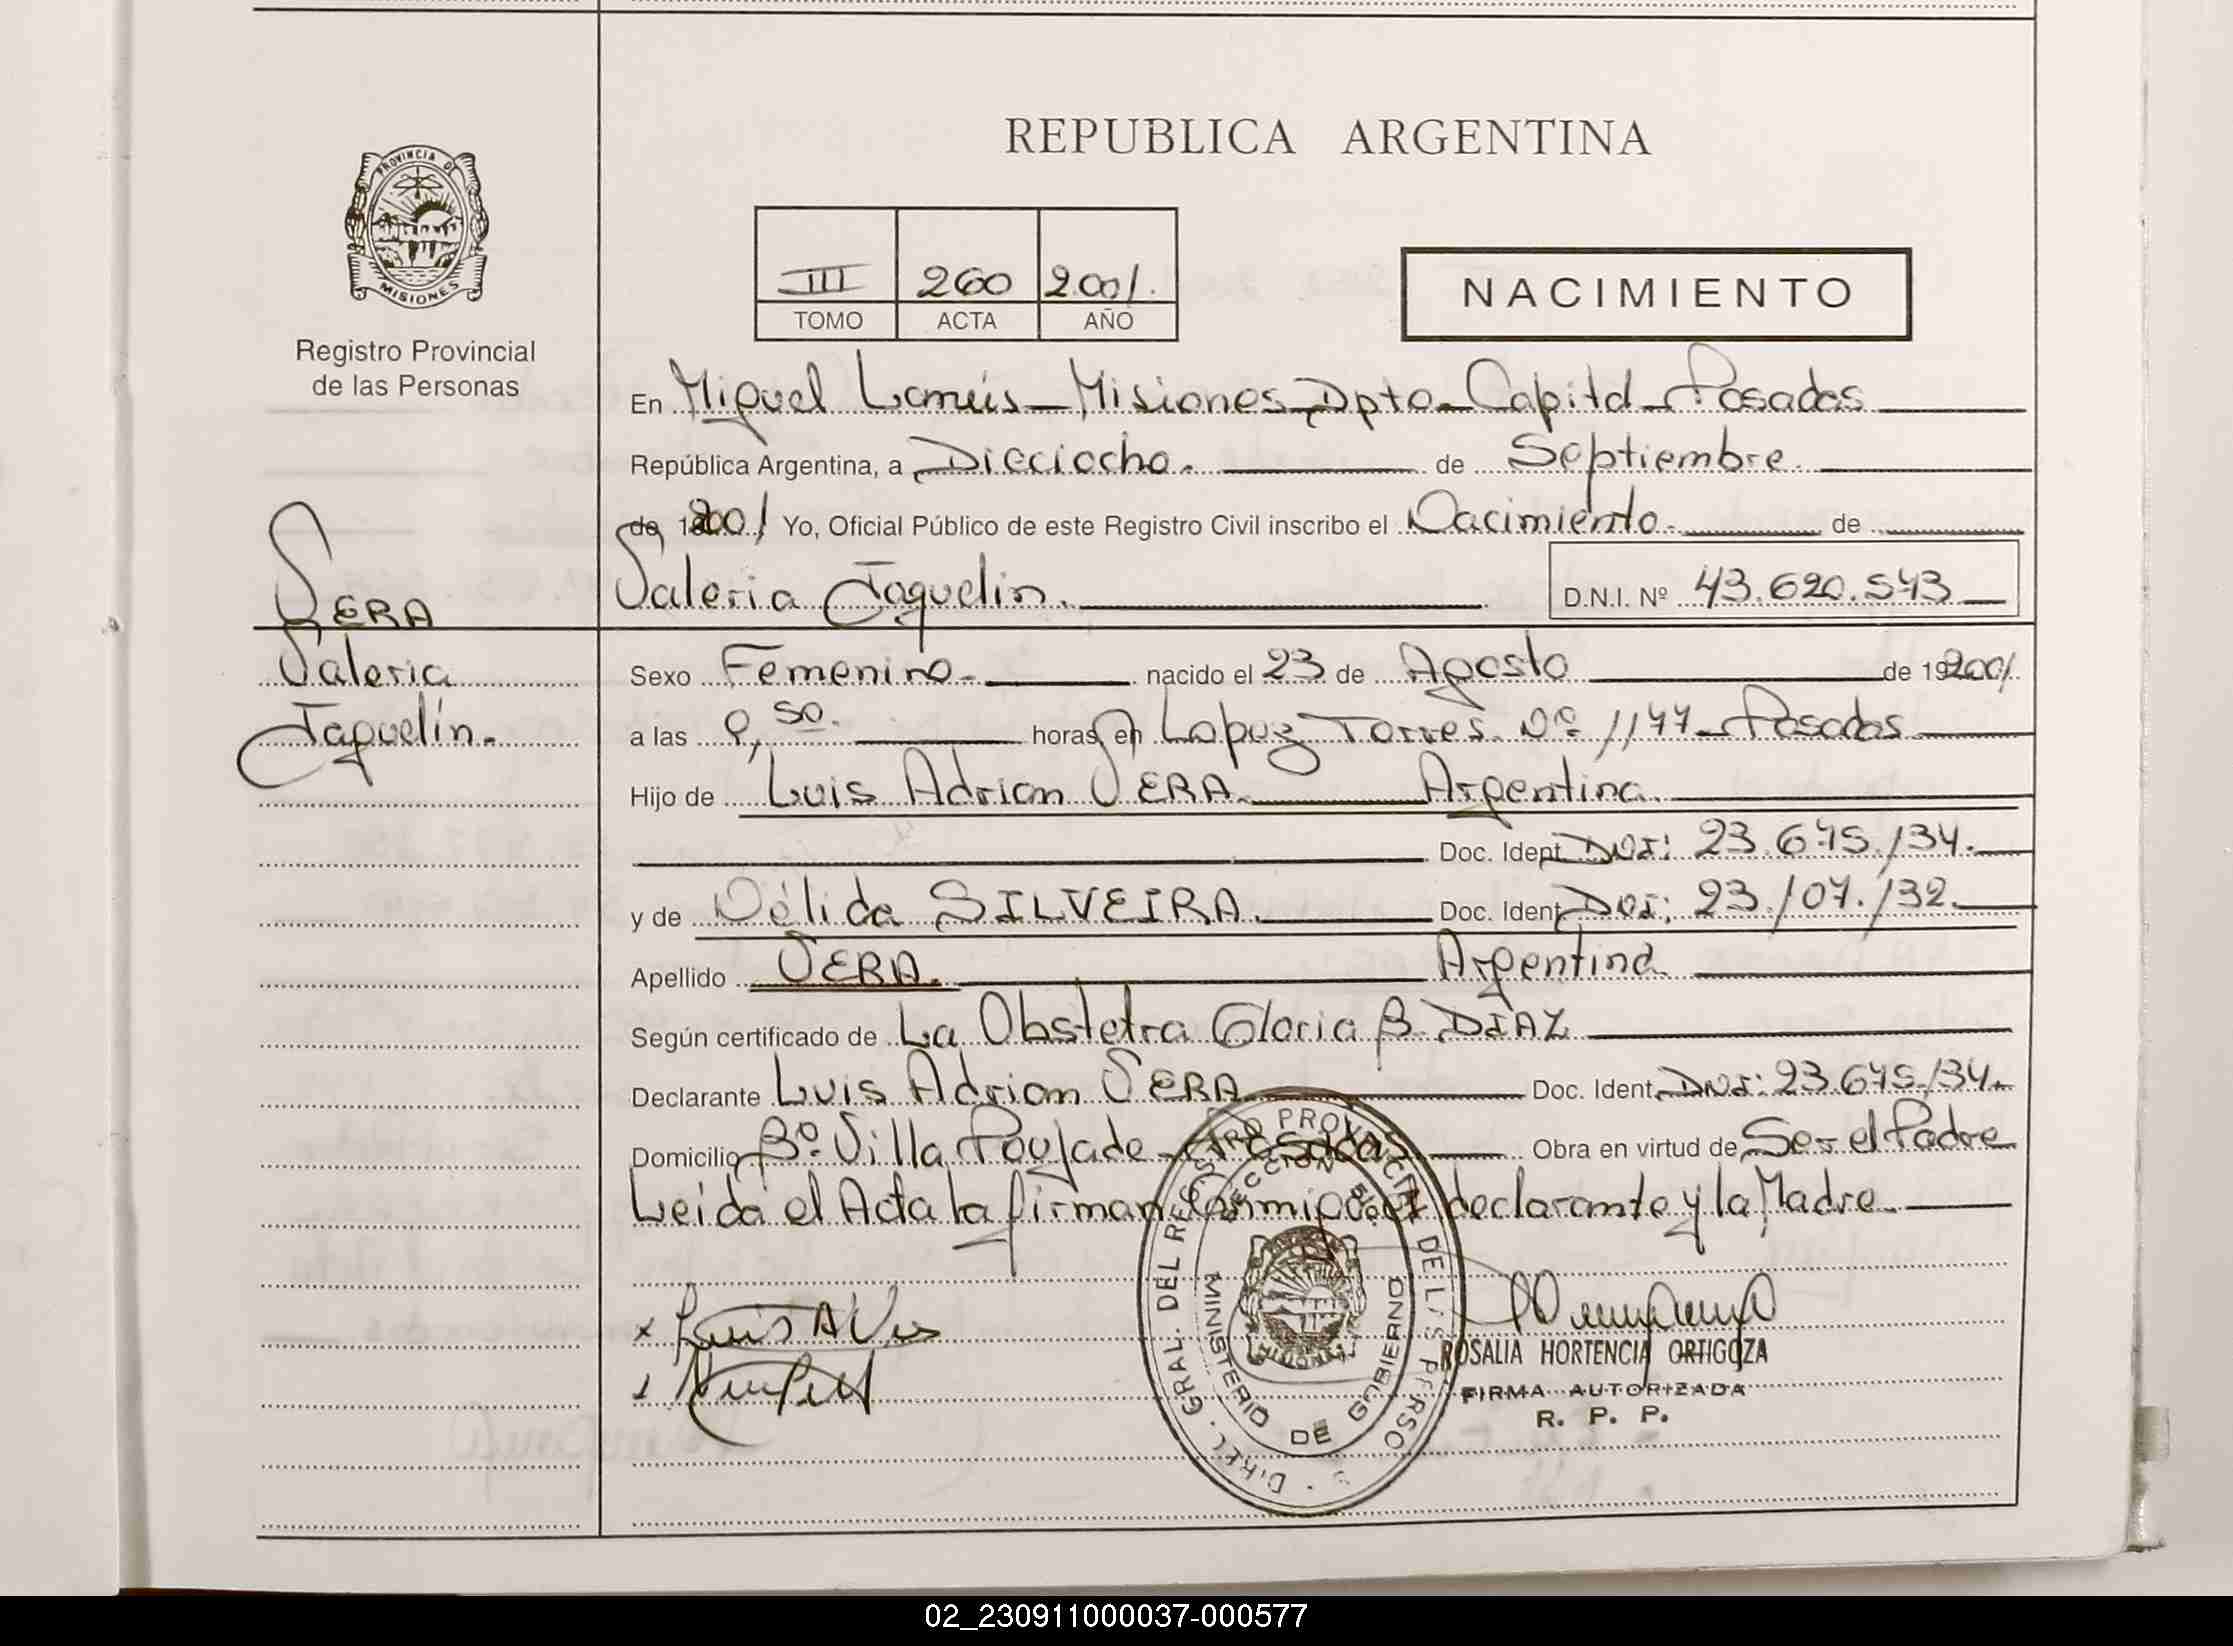 REPUBLICA ARGENTINA
PROVINCIA DE
MISIONES
Registro Provincial
de las Personas
III 260 2001.
TOMO ACTA AÑO
NACIMIENTO
En Miguel Lanús - Misiones - Dpto - Capital - Posadas
República Argentina, a Dieciocho. de Septiembre.
de 2001 Yo, Oficial Público de este Registro Civil inscribo el Nacimiento. de
Valeria Jaquelin. D.N.I. Nº 43.620.543
VERA
Valeria
Jaquelín.
Sexo Femenino - nacido el 23 de Agosto de 19 2001.
a las 9,50. horas en Lopez Torres Nº 1177 - Posadas
Hijo de Luis Adrian VERA. Argentina.
Doc. Ident. DNI: 23.675.134.
y de Nélida SILVEIRA. Doc. Ident. DNI: 23.107.132.
Apellido VERA. Argentina
Según certificado de La Obstetra Gloria B. DIAZ
Declarante Luis Adrian VERA Doc. Ident. DNI: 23.675.134.
Domicilio Bº. Villa Poujade - Posadas Obra en virtud de Ser el Padre
Leída el Acta la firman conmigo el declarante y la Madre.
x Luis A Ve
DIREC. GRAL. DEL REGISTRO PROVINCIAL DE LAS PERSONAS
MINISTERIO DE GOBIERNO
ROSALIA HORTENCIA ORTIGOZA
FIRMA AUTORIZADA
R. P. P.
02_230911000037-000577